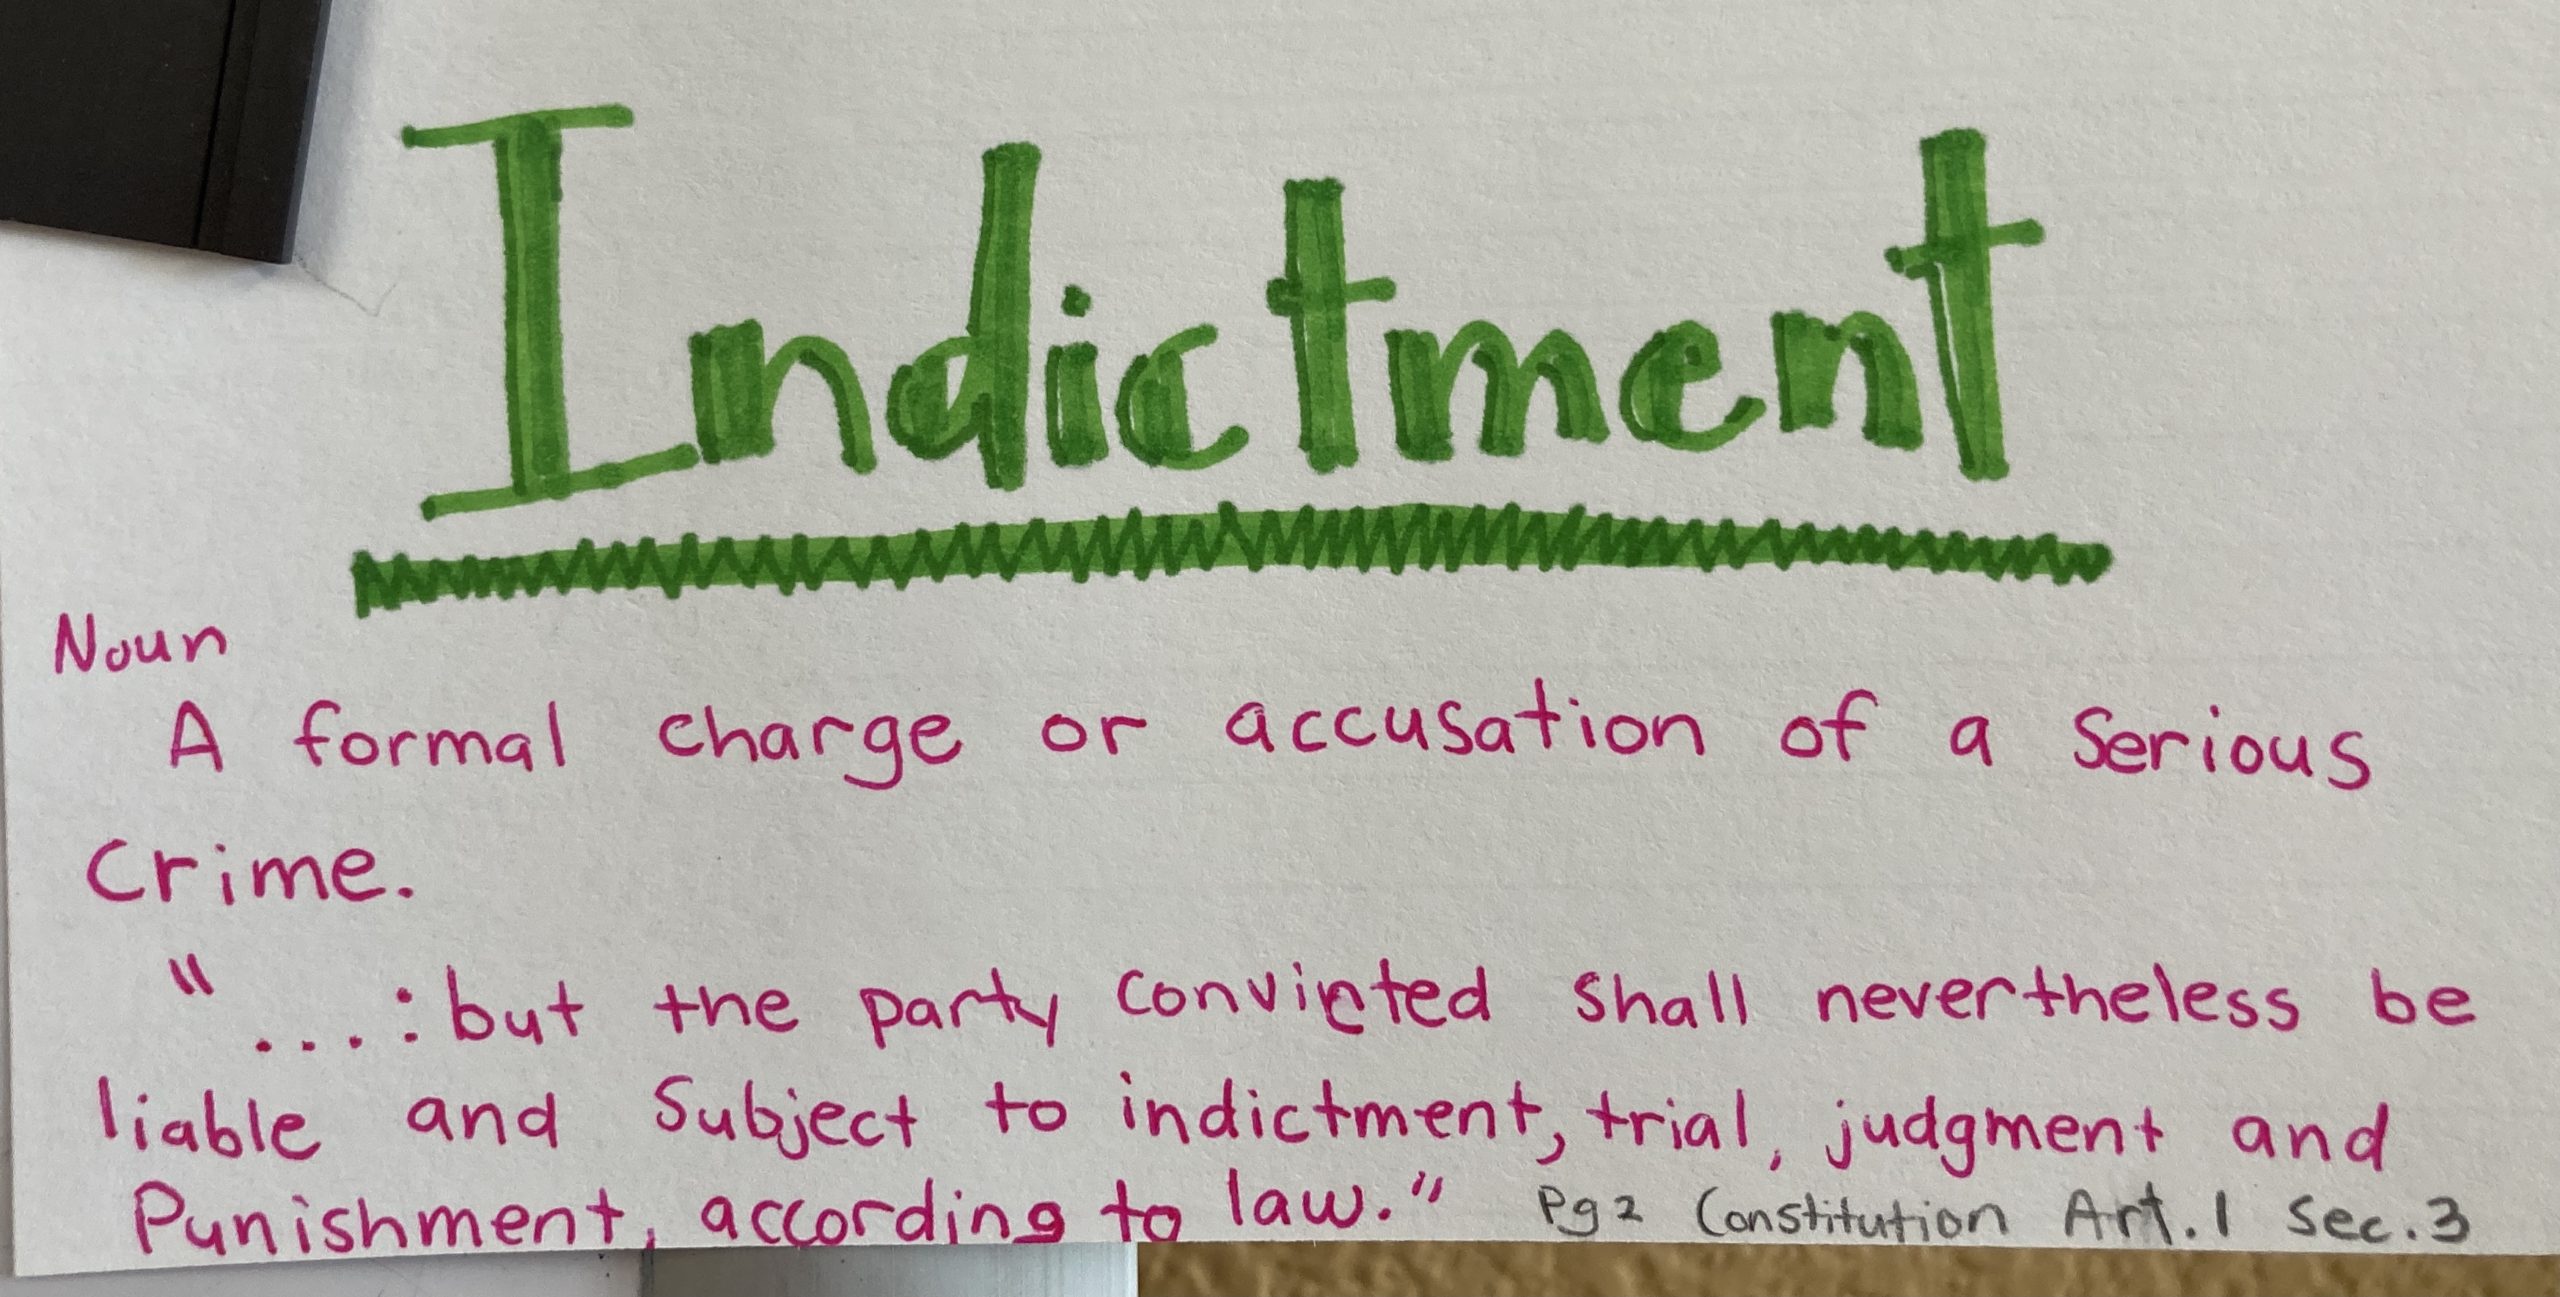 Indictment
Noun
A formal charge or accusation of a serious
crime.
"...: but the party convicted shall nevertheless be
liable and subject to indictment, trial, judgment and
Punishment, according to law." Pg 2 Constitution Art. 1 Sec. 3